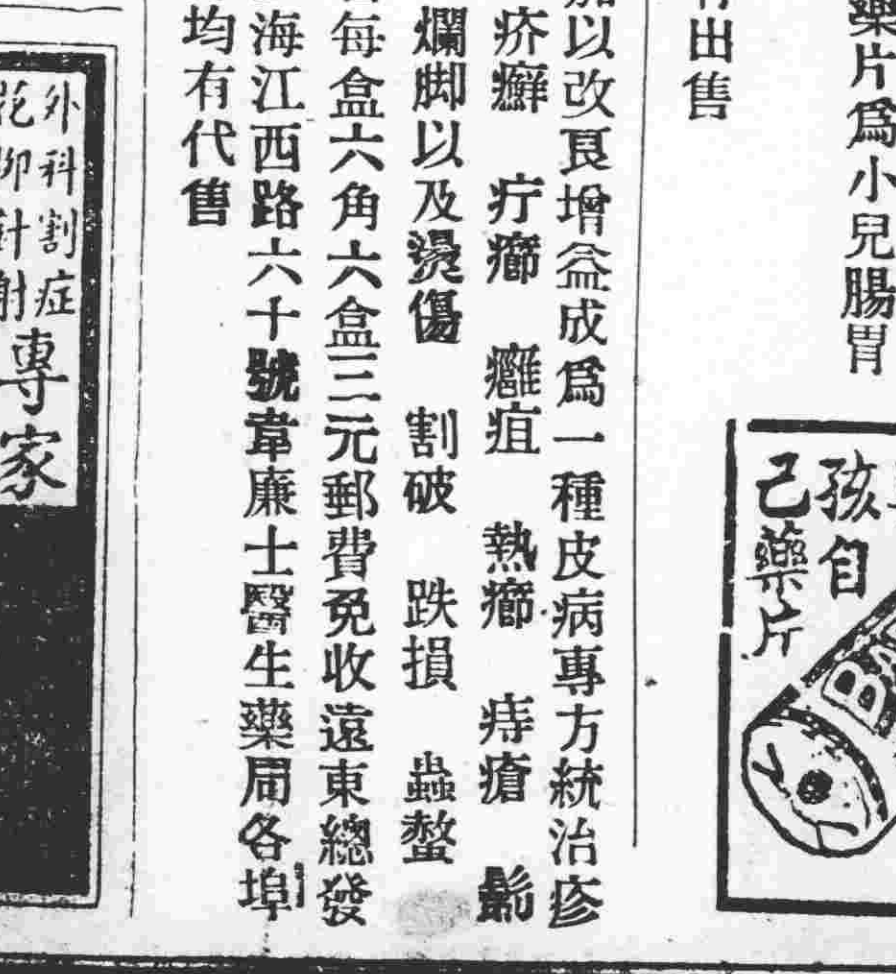 藥片爲小兒腸胃
出售
孩自
己藥片
BA
加以改良增益成爲一種皮病專方統治疹
疥癬 疔癤 癰疽 熱癤 痔瘡 髴
爛脚以及燙傷 割破 跌損 蟲螫
每盒六角六盒三元郵費免收遠東總發
海江西路六十號韋廉士醫生藥局各埠
均有代售
外科割症
花柳針射
專家